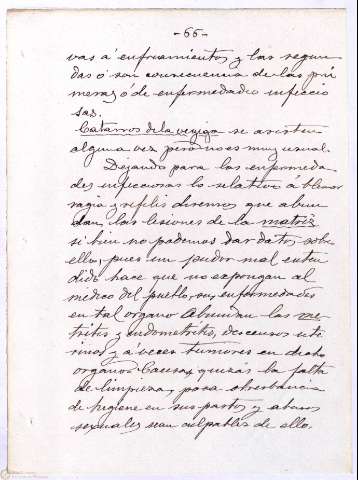 -66-
vas á enfriamientos y las segun
das ó son consecuencia de las pri
meras, ó de enfermedades infeccio
sas.
Catarros de la vejiga se asisten
alguna vez pero no es muy usual.
Dejando para las enfermeda
des infecciosas lo relativo á blenor
ragia y sifilis diremos que abun
dan las lesiones de la matriz
si bien no podemos dar datos sobre
ello, pues un pudor mal enten
dido hace que no expongan al
médico del pueblo, sus enfermedades
en tal organo. Abundan las me
tritis y endometritis, descensos uteri
rinos y á veces tumores en dicho
organo. Causas, quizás la falta
de limpieza, poca observancia
de higiene en sus partos y abusos
sexuales sean culpables de ello.